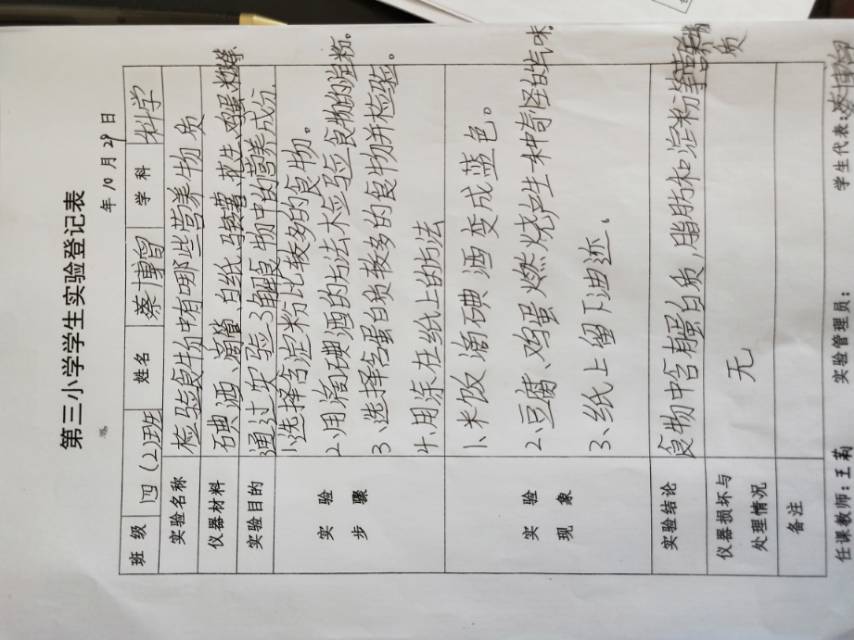 第三小学学生实验登记表
年 10 月 29 日
班 级 四(2)班 姓名 蔡博留 学 科 科学
实验名称 检验食物中有哪些营养物质
仪器材料 碘酒、滴管、白纸、马铃薯、花生、鸡蛋、
实验目的 通过实验了解食物中的营养成份
实 验
步 骤
1.选择含淀粉比较多的食物。
2、用滴碘酒的方法术检验食物的淀粉。
3、选择含蛋白质较多的食物并检验。
4.用涂在纸上的方法
实 验
现 象
1、米饭滴碘酒变成蓝色。
2、豆腐、鸡蛋燃烧产生一种奇怪的气味
3、纸上留下油迹。
实验结论 食物中含有蛋白质,脂肪和淀粉等营养物
质
仪器损坏与
处理情况
无
备注
任课教师:王莉 实验管理员: 学生代表: